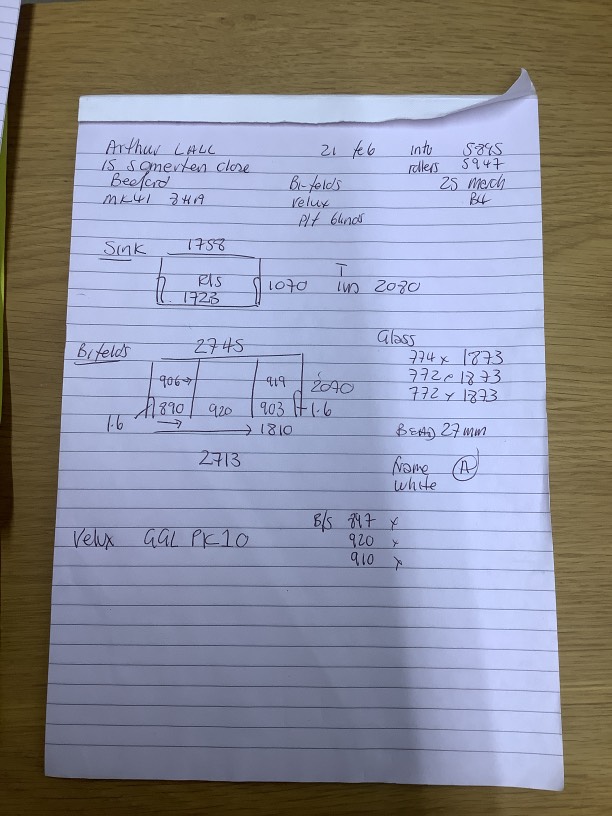 Arthur LALL 21 feb intu 5895
15 Somerten close rollers 5947
Bedford Bi-folds 25 March
MK41 8HA velux B4
Plt blinds
Sink 1758
R/S 1070 T 2080
1723
Bifolds 2745 Glass
774 x 1873
906→ 919 2040 772 x 1873
772 x 1873
890 920 903 1.6
1.6 → 1810 BEAD 27mm
2713 Name A
White
B/S 897 x
Velux GGL PK10 920 x
910 x